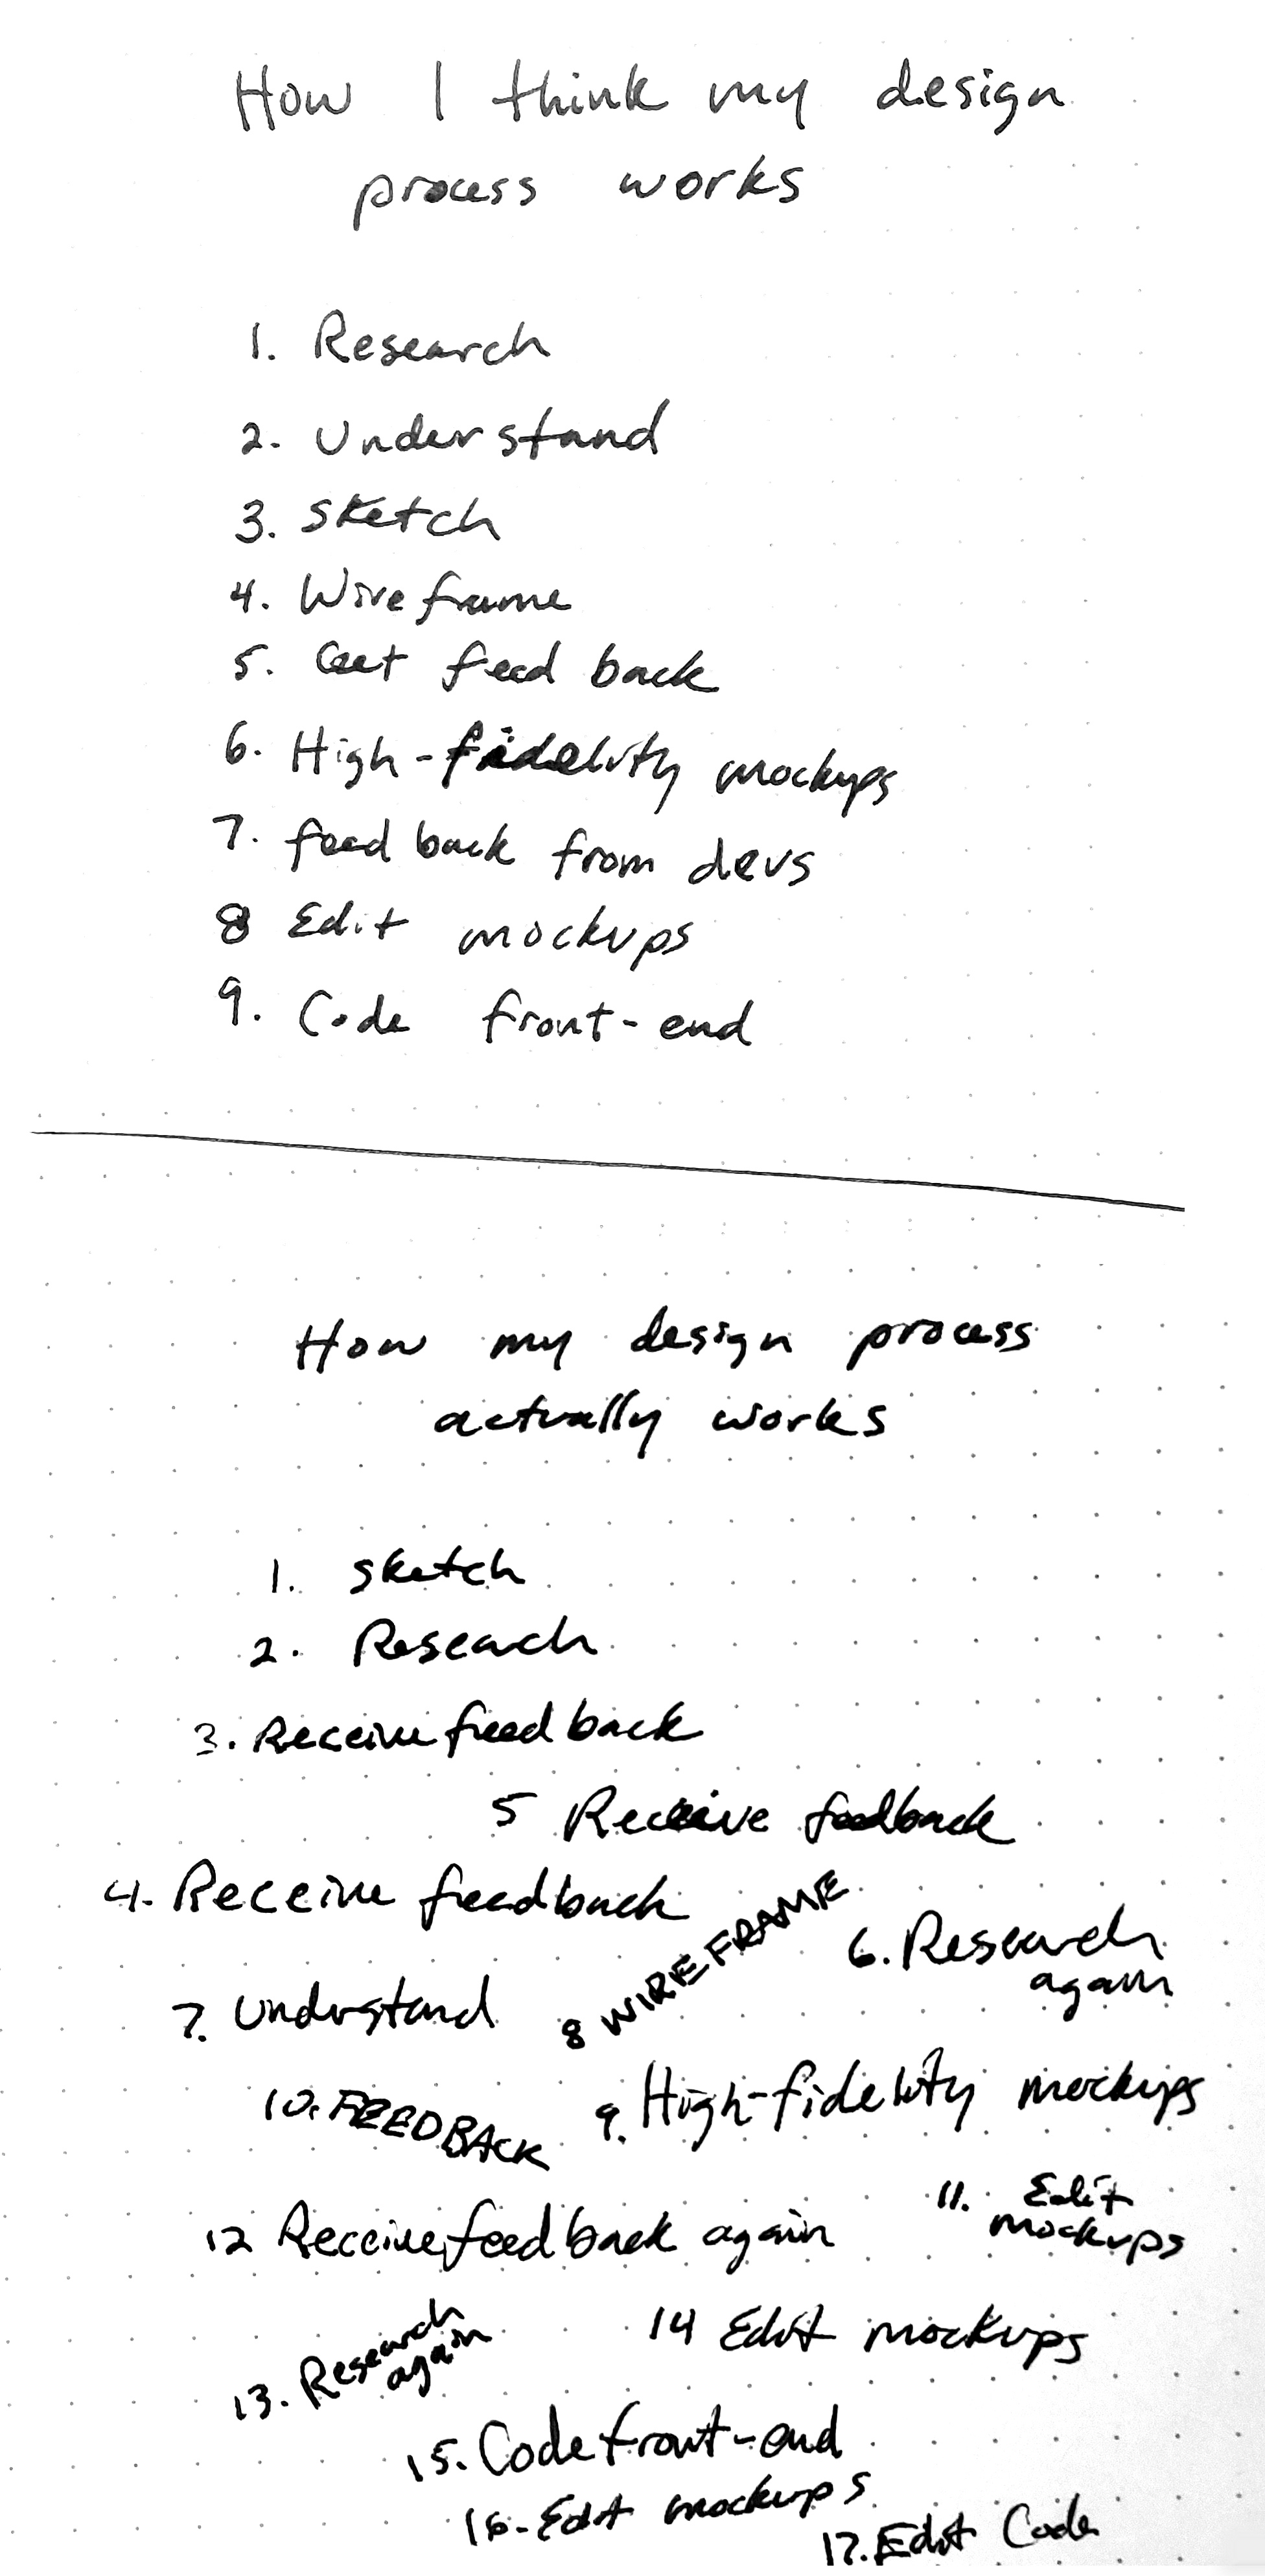 How I think my design
process works
1. Research
2. Understand
3. Sketch
4. Wireframe
5. Get feedback
6. High-fidelity mockups
7. feedback from devs
8 Edit mockups
9. Code front-end
How my design process
actually works
1. Sketch
2. Research
3. Receive feedback
5 Receive feedback
4. Receive feedback
8 WIREFRAME
6. Research
again
7. Understand
9. High-fidelity mockups
10. FEEDBACK
11. Edit
mockups
12 Receive feedback again
13. Research
again
14 Edit mockups
15. Code front-end
16. Edit mockups
17. Edit Code